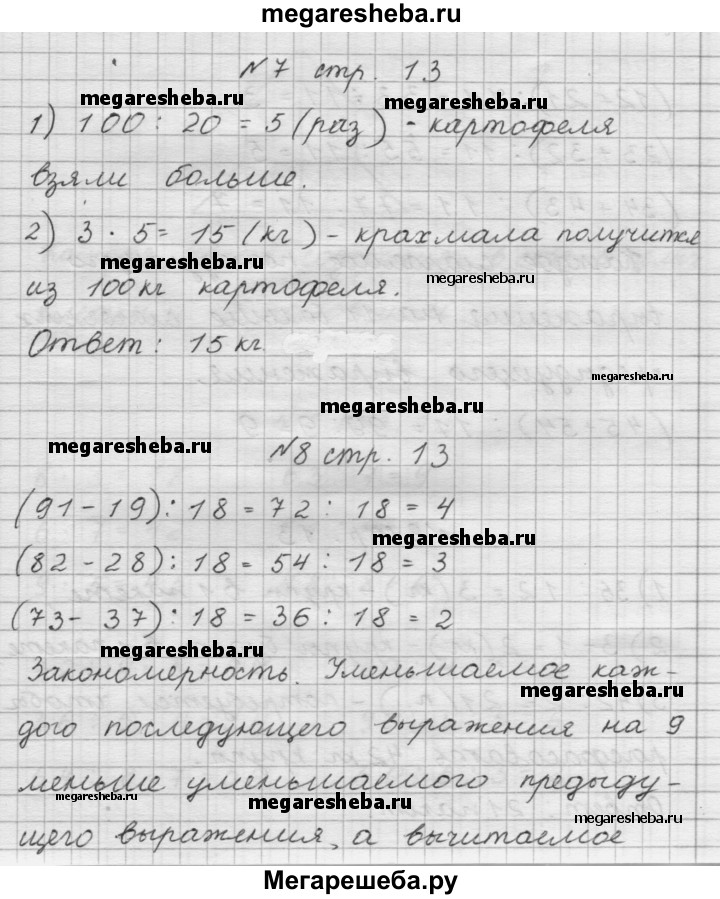 megaresheba.ru
N7 стр. 13
megaresheba.ru megaresheba.ru
1) 100 : 20 = 5 (раз) - картофеля
взяли больше.
2) 3 · 5 = 15 (кг) - крахмала получится
megaresheba.ru megaresheba.ru
из 100кг картофеля.
Ответ: 15 кг
megaresheba.ru
megaresheba.ru
megaresheba.ru
N8 стр. 13
(91-19) : 18 = 72 : 18 = 4
megaresheba.ru
(82-28) : 18 = 54 : 18 = 3
(73-37) : 18 = 36 : 18 = 2
megaresheba.ru
Закономерность. Уменьшаемое каж-
megaresheba.ru
дого последующего выражения на 9
меньше уменьшаемого предыду-
megaresheba.ru megaresheba.ru megaresheba.ru
щего выражения, а вычитаемое
Мегарешеба.ру